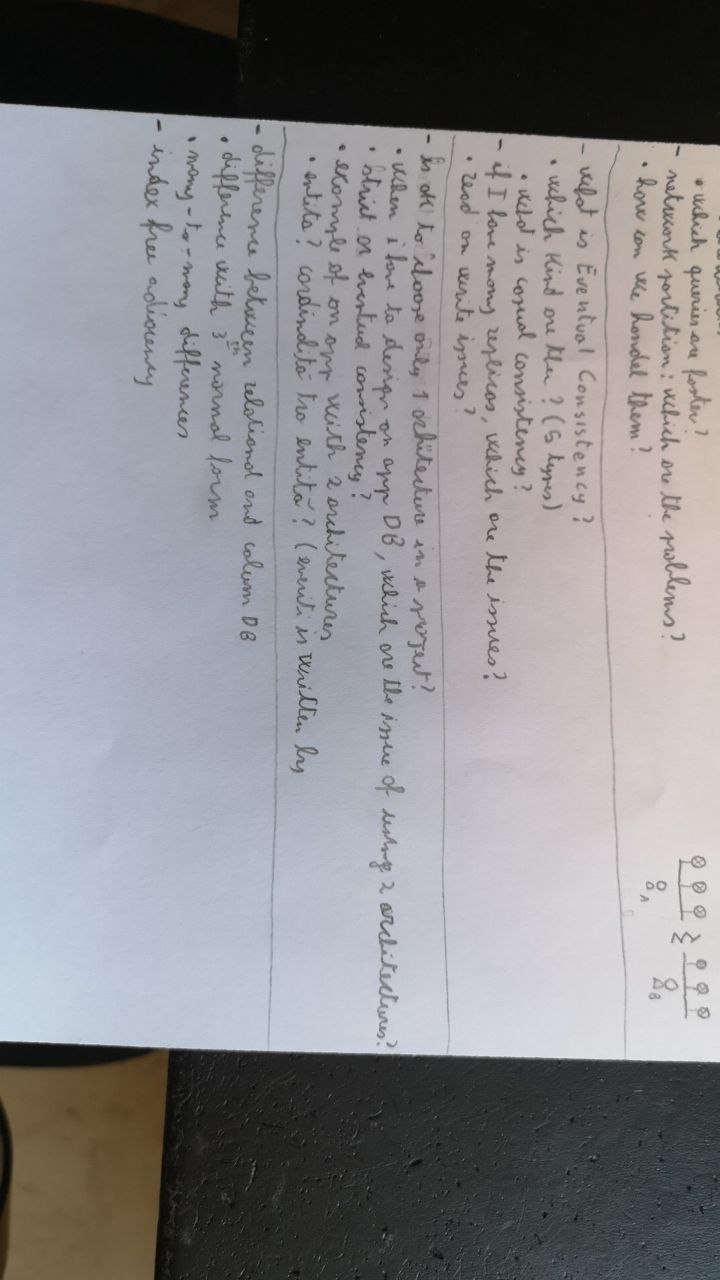 • which queries are faster?
- network partition: which are the problems?
• how can we handel them?
A
B
- what is Eventual Consistency?
• which kind are ther? (5 types)
• what is casual consistency?
- if I have many replicas, which are the issues?
• read on write issues?
- Is ok to choose only 1 architecture in a project?
• when i have to design an app DB, which are the issue of using 2 architectures?
• strict or eventual consistency?
• example of an app with 2 architectures
• entità? cardinalità tra entità? (event is written by
- difference between relational and colum DB
• difference with 3th normal form
• many-to-many differences
- index free adiacency